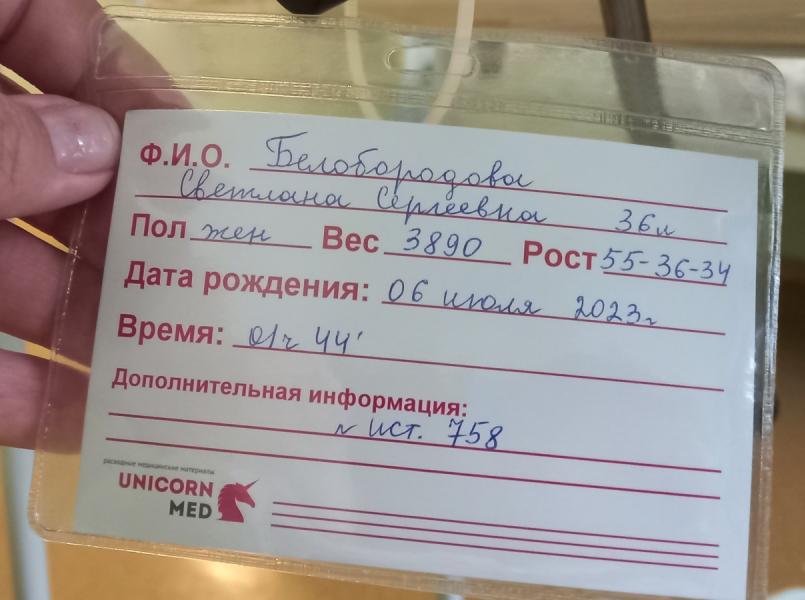 Ф.И.О. Белобородова
Светлана Сергеевна 36л
Пол жен Вес 3890 Рост 55-36-34
Дата рождения: 06 июля 2023г
Время: 01ч 44'
Дополнительная информация:
№ ист. 758
расходные медицинские материалы
UNICORN
MED